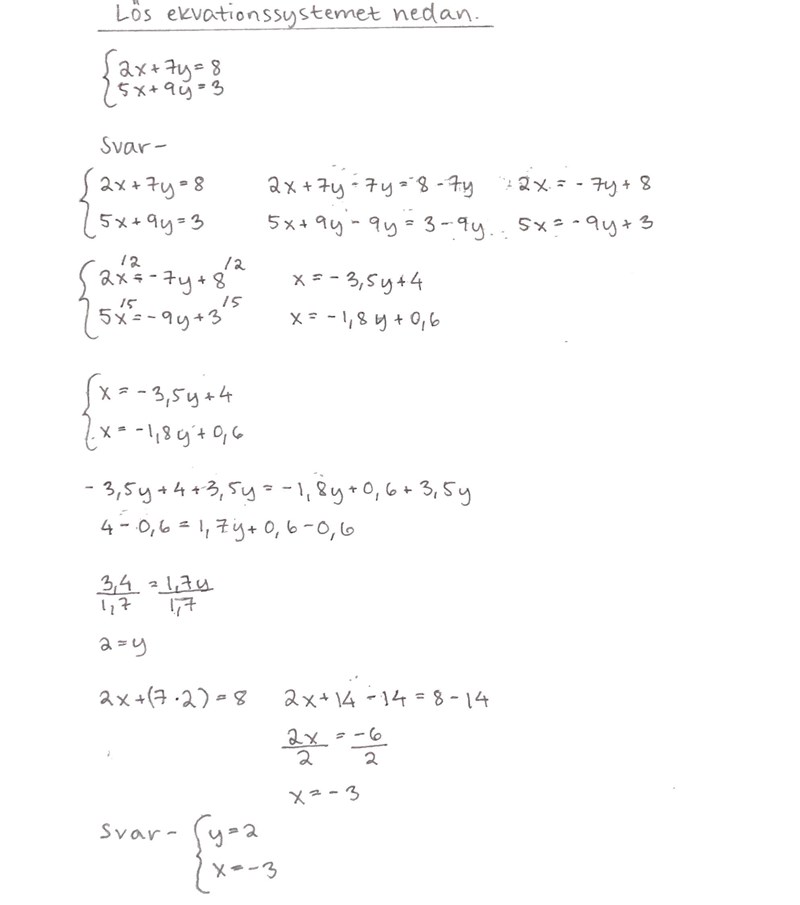 Lös ekvationssystemet nedan.
{2x+7y=8
5x+9y=3
Svar-
{2x+7y=8 2x+7y-7y=8-7y 2x=-7y+8
5x+9y=3 5x+9y-9y=3-9y 5x=-9y+3
{2x/2=-7y+8/2 x=-3,5y+4
5x/5=-9y+3/5 x=-1,8y+0,6
{x=-3,5y+4
x=-1,8y+0,6
-3,5y+4+3,5y=-1,8y+0,6+3,5y
4-0,6=1,7y+0,6-0,6
3,4/1,7=1,7y/1,7
2=y
2x+(7·2)=8 2x+14-14=8-14
2x/2=-6/2
x=-3
Svar- {y=2
x=-3